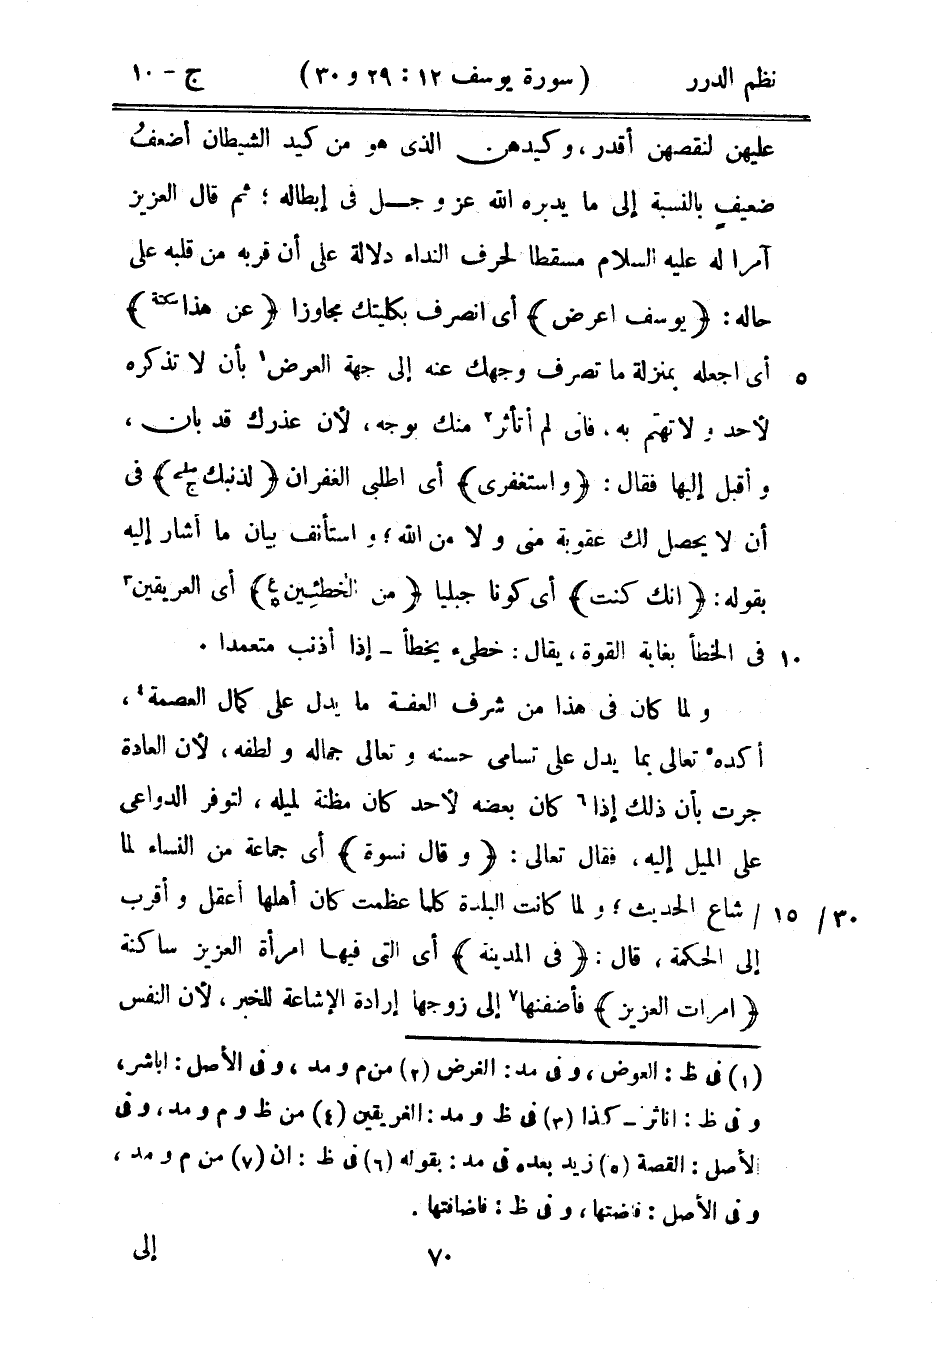 نظم الدرر ( سورة يوسف ١٢ : ٢٩ و ٣٠ ) ج - ١٠
عليهن لنقصهن أقدر ، و كيدهن الذى هو من كيد الشيطان أضعفُ
ضعيفٍ بالنسبة إلى ما يدبره الله عز و جل فى إبطاله ؛ ثم قال العزيز
آمرا له عليه السلام مسقطا لحرف النداء دلالة على أن قربه من قلبه على
حاله : ﴿ يوسف اعرض ﴾ أى انصرف بكليتك مجاوزا ﴿ عن هذا سكتة ﴾
٥ أى اجعله بمنزلة ما تصرف وجهك عنه إلى جهة العرض١ بأن لا تذكره
لأحد و لا تهتم به ، فانى لم أتأثر٢ منك بوجه ، لأن عذرك قد بان ،
و أقبل إليها فقال : ﴿ و استغفرى ﴾ أى اطلبى الغفران ﴿ لذنبك صلے ج ﴾ فى
أن لا يحصل لك عقوبة منى و لا من الله ؛ و استأنف بيان ما أشار إليه
بقوله : ﴿ انك كنت ﴾ أى كونا جبليا ﴿ من الخٰطئين ع ﴾ أى العريقين٣
١٠ فى الخطأ بغاية القوة ، يقال : خطىء يخطأ - إذا أذنب متعمدا .
و لما كان فى هذا من شرف العفة ما يدل على كمال العصمة٤ ،
أكده٥ تعالى بما يدل على تسامى حسنه و تعالى جماله و لطفه ، لأن العادة
جرت بأن ذلك إذا٦ كان بعضه لأحد كان مظنة لميله ، لتوفر الدواعى
على الميل إليه ، فقال تعالى : ﴿ و قال نسوة ﴾ أى جماعة من النساء لما
٣٠ / ١٥ / شاع الحديث ؛ و لما كانت البلدة كلما عظمت كان أهلها أعقل و أقرب
إلى الحكمة ، قال : ﴿ فى المدينة ﴾ أى التى فيها امرأة العزيز ساكنة
﴿ امرات العزيز ﴾ فأضفنها٧ إلى زوجها إرادة الإشاعة للخبر ، لأن النفس
(١) فى ظ : العوض ، و فى مد : الغرض (٢) من م و مد ، و فى الأصل : اباشر ،
و فى ظ : اناثر - كذا (٣) فى ظ و مد : الغريقين (٤) من ظ و م و مد ، و فى
الأصل : القصة (٥) زيد بعده فى مد : بقوله (٦) فى ظ : ان (٧) من م و مد ،
و فى الأصل : فاضتها ، و فى ظ : فاضافتها .
٧٠ إلى